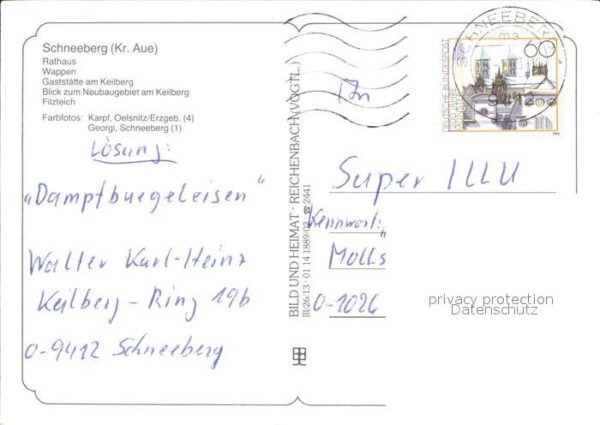 Schneeberg (Kr. Aue)
Rathaus
Wappen
Gaststätte am Keilberg
Blick zum Neubaugebiet am Keilberg
Filzteich
Farbfotos: Karpf, Oelsnitz/Erzgeb. (4)
Georgi, Schneeberg (1)
Lösung:
"Dampfbuegeleisen"
Walter Karl-Heinz
Keilberg-Ring 19b
O-9412 Schneeberg
BILD UND HEIMAT · REICHENBACH (VOGTL.)
III/26/13 · 01 14 1889/02 · ☎ 2441
SCHNEEBERG
60
DEUTSCHE BUNDESPOST
Super ILLU
Kennwort:
"Molls
O-1026
privacy protection
Datenschutz